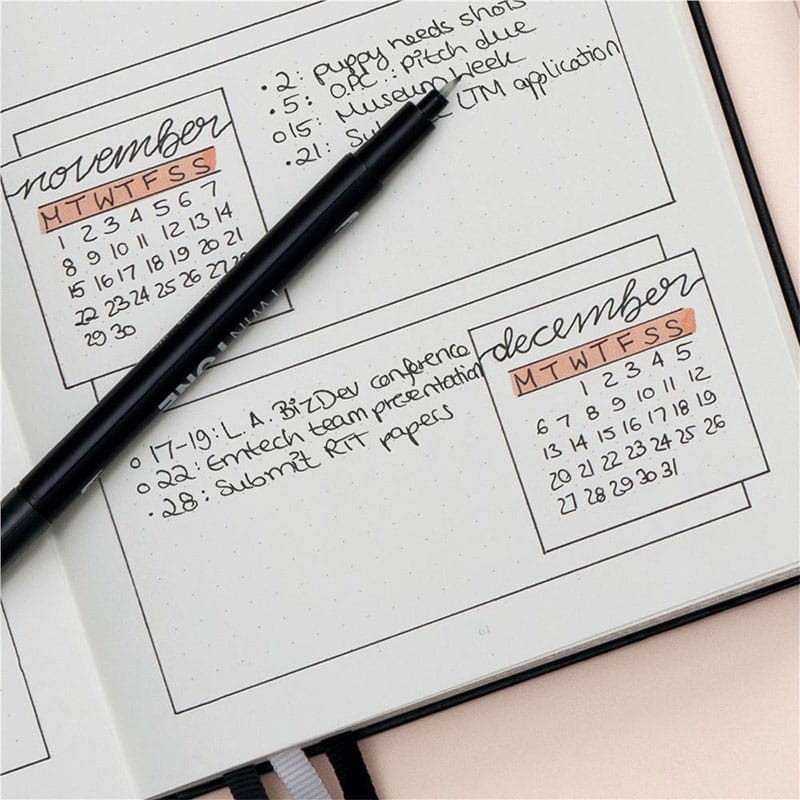 november
M T W T F S S
1 2 3 4 5 6 7
8 9 10 11 12 13 14
15 16 17 18 19 20 21
22 23 24 25 26 27
29 30
• 2: puppy needs shots
• 5: OPC: pitch due
o 15: Museum Week
• 21: LTM application
TWIN TONE
december
M T W T F S S
1 2 3 4 5
6 7 8 9 10 11 12
13 14 15 16 17 18 19
20 21 22 23 24 25 26
27 28 29 30 31
o 17-19: L.A. BizDev conference
o 22: Emtech team presentation
• 28: Submit RIT papers
61